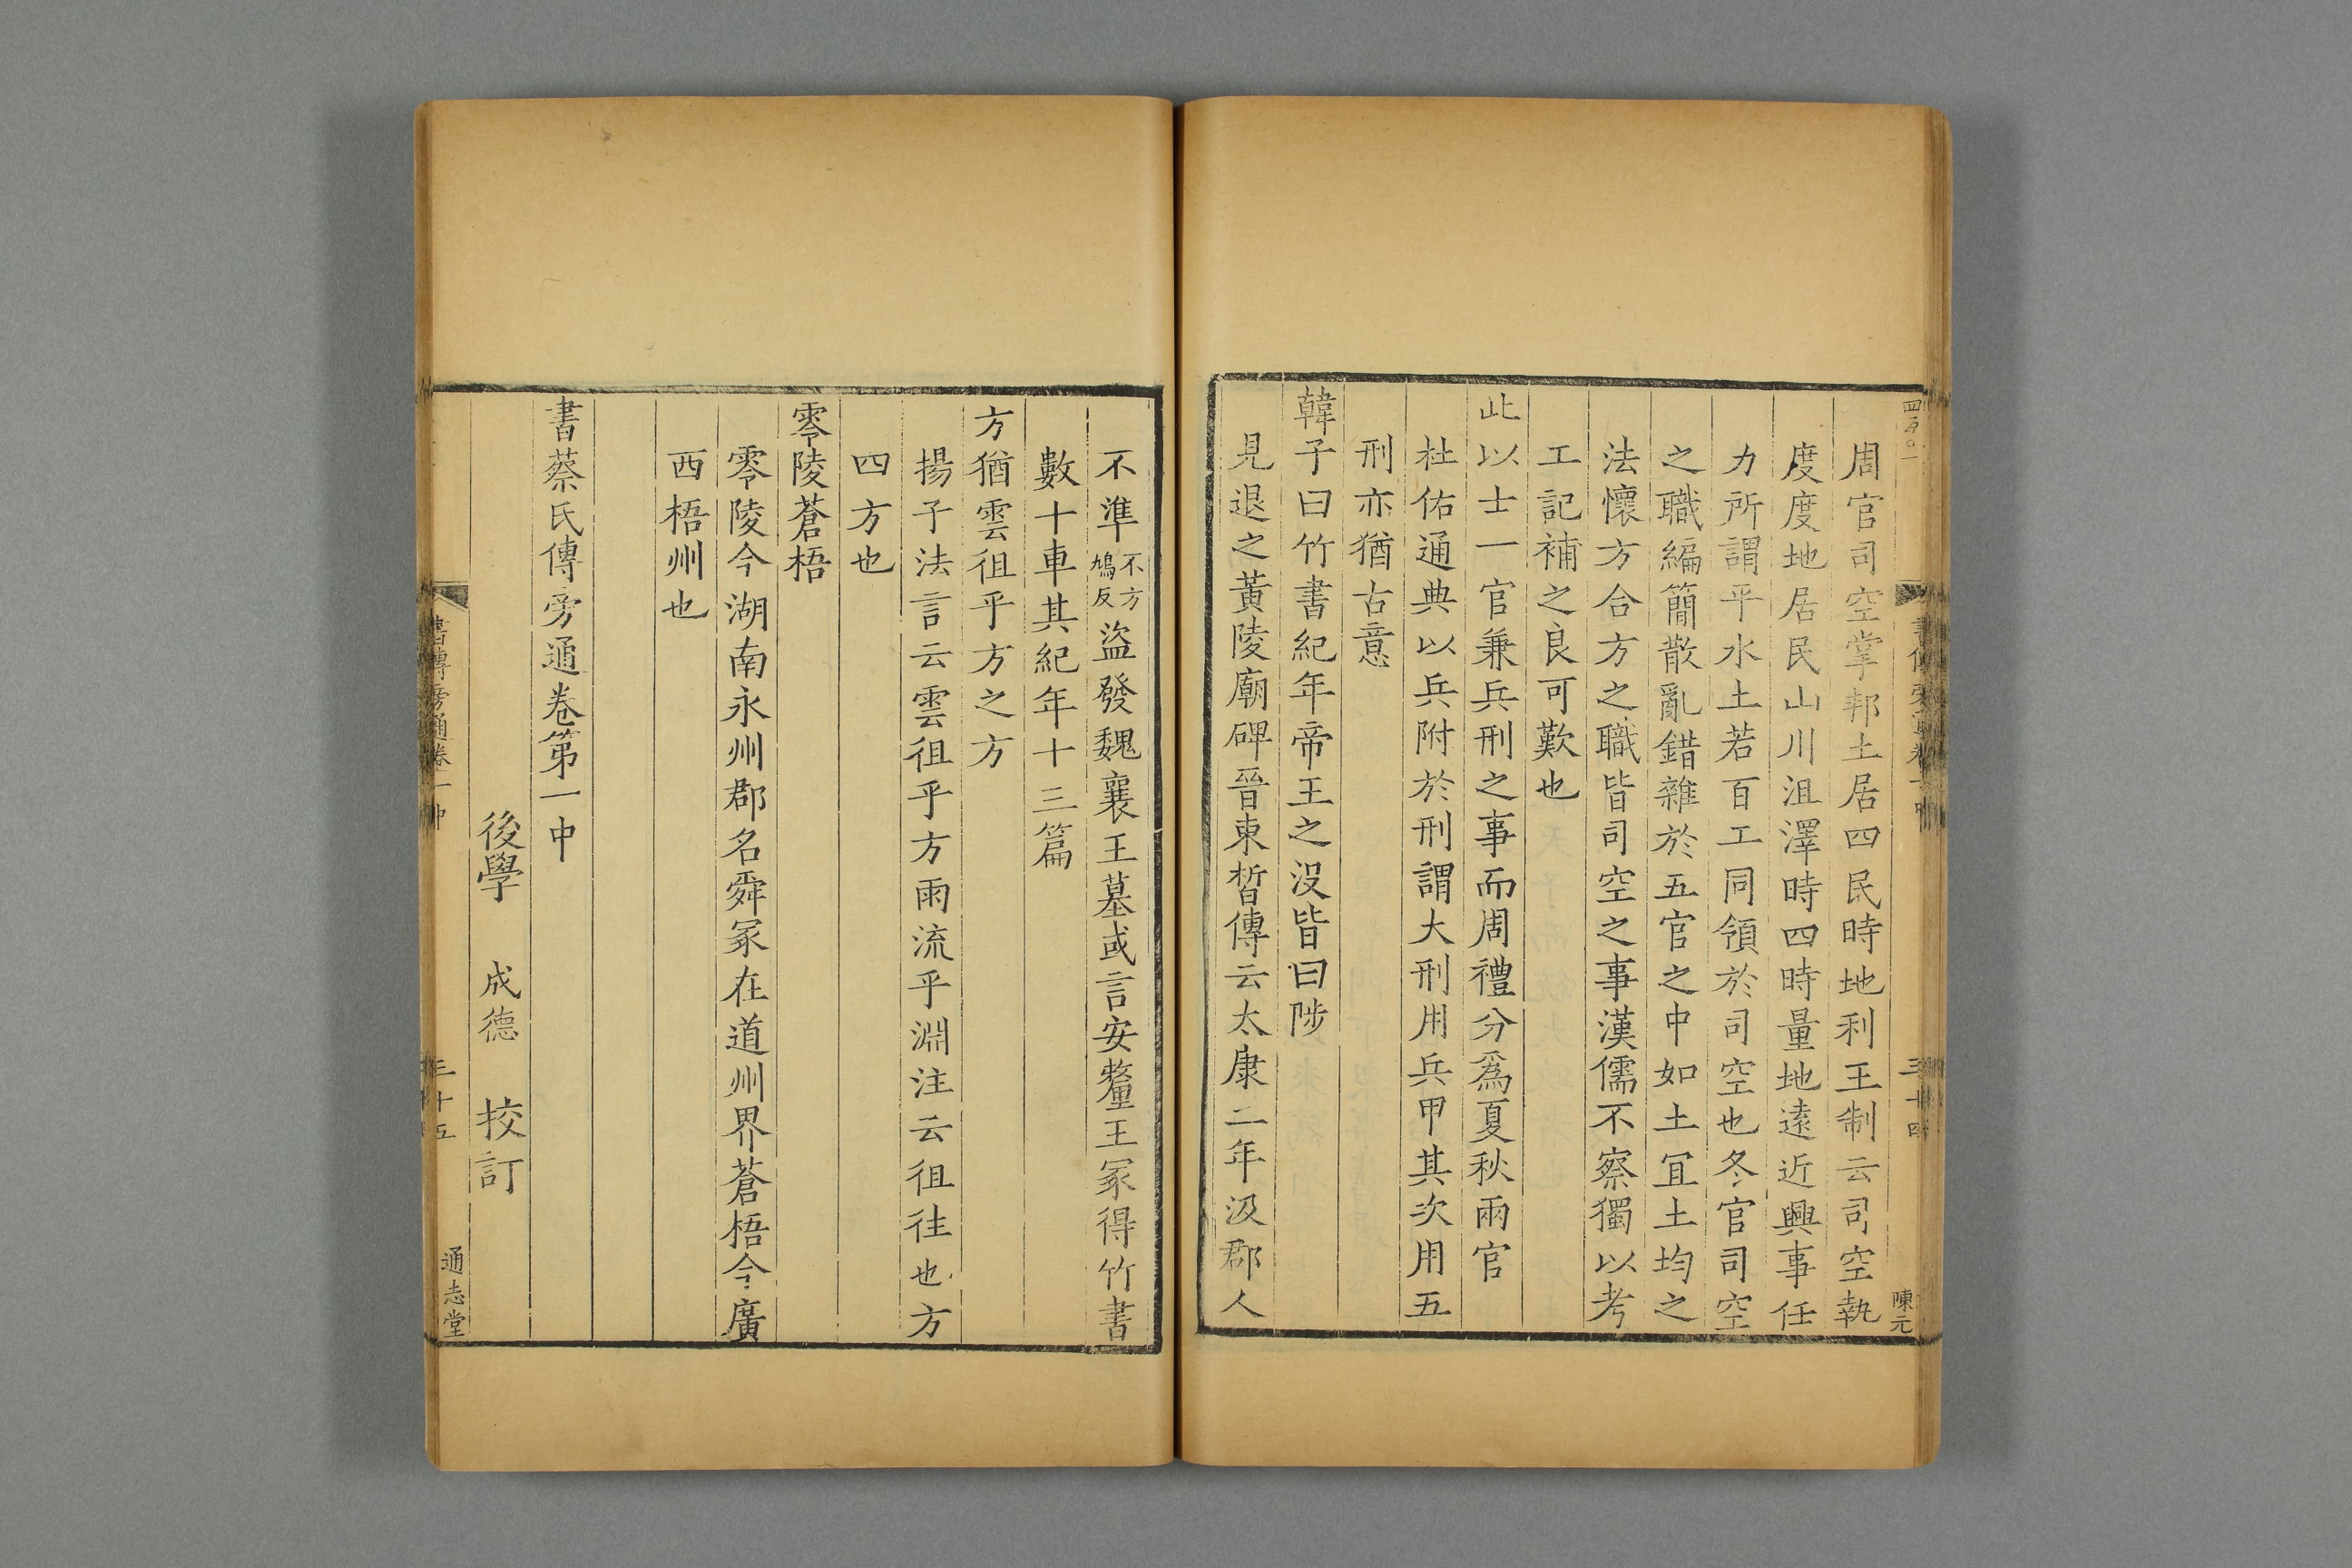 周官司空掌邦土居四民時地利王制云司空執
度度地居民山川沮澤時四時量地遠近興事任
力所謂平水土若百工同領於司空也冬官司空
之職編簡散亂錯雜於五官之中如土宜土均之
法懷方合方之職皆司空之事漢儒不察獨以考
工記補之良可歎也
此以士一官兼兵刑之事而周禮分爲夏秋兩官
杜佑通典以兵附於刑謂大刑用兵甲其次用五
刑亦猶古意
韓子曰竹書紀年帝王之沒皆曰陟
見退之黃陵廟碑晉束皙傳云太康二年汲郡人
陳元
三十四
不準不方鳩反盜發魏襄王墓或言安釐王冢得竹書
數十車其紀年十三篇
方猶雲徂乎方之方
揚子法言云雲徂乎方雨流乎淵注云徂往也方
四方也
零陵蒼梧
零陵今湖南永州郡名舜冢在道州界蒼梧今廣
西梧州也
書蔡氏傳旁通卷第一中
後學 成德 挍訂
書傳旁通卷一中
三十五
通志堂